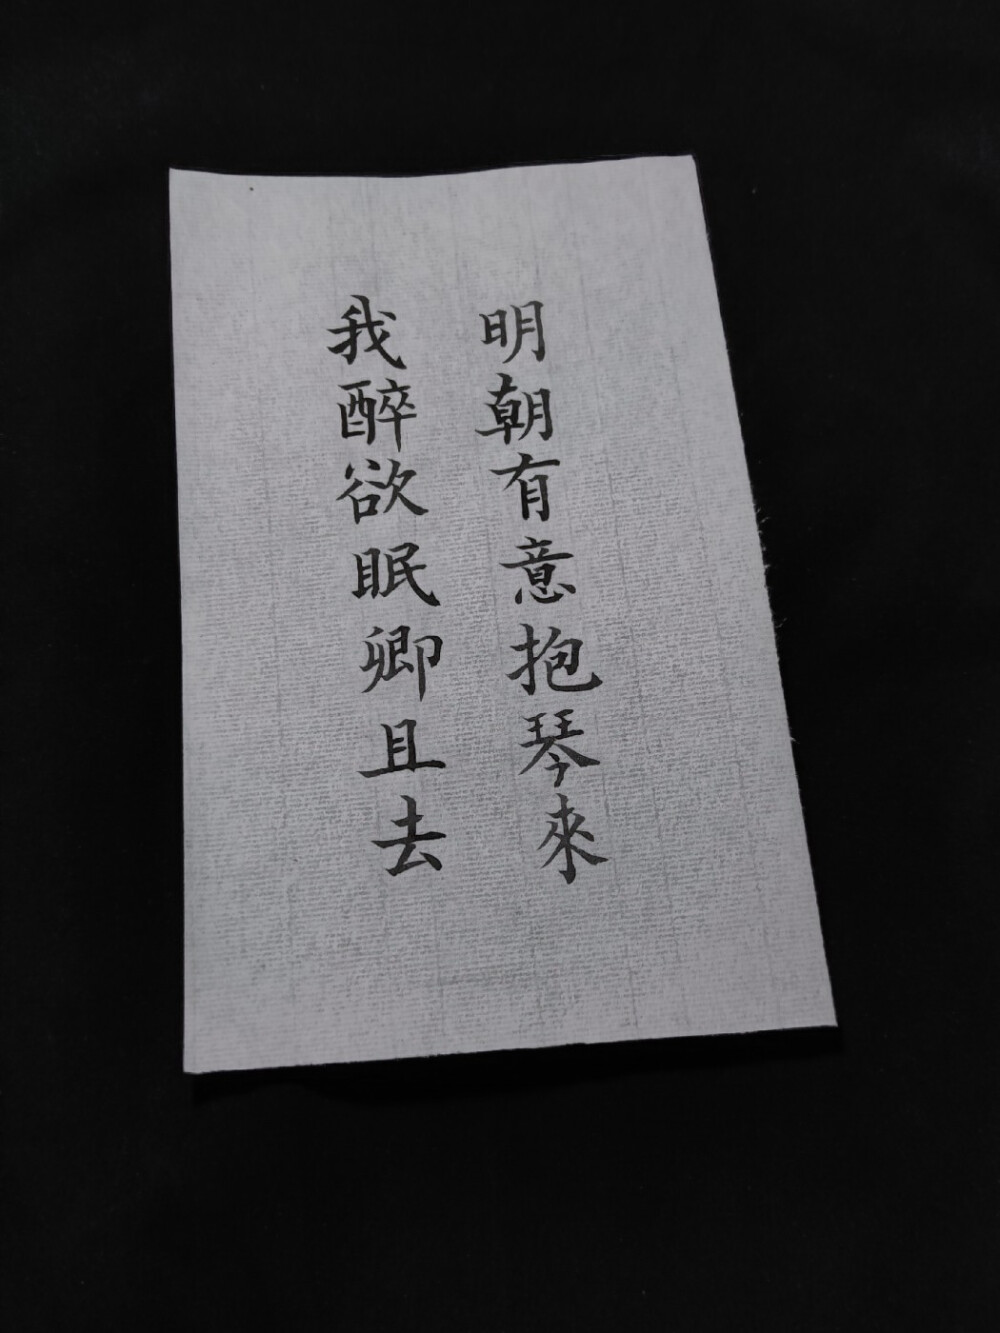 我醉欲眠卿且去
明朝有意抱琴來